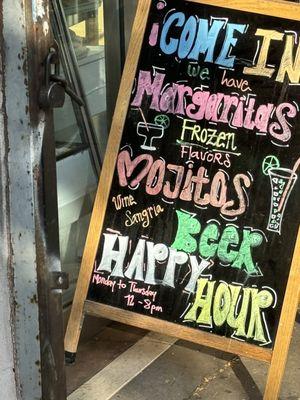 ¡COME IN
we have
Margaritas
FROZEN
FLAVORS
MOJITOS
Wine
Sangria
Beer
HAPPY
HOUR
Monday to Thursday
12-8pm